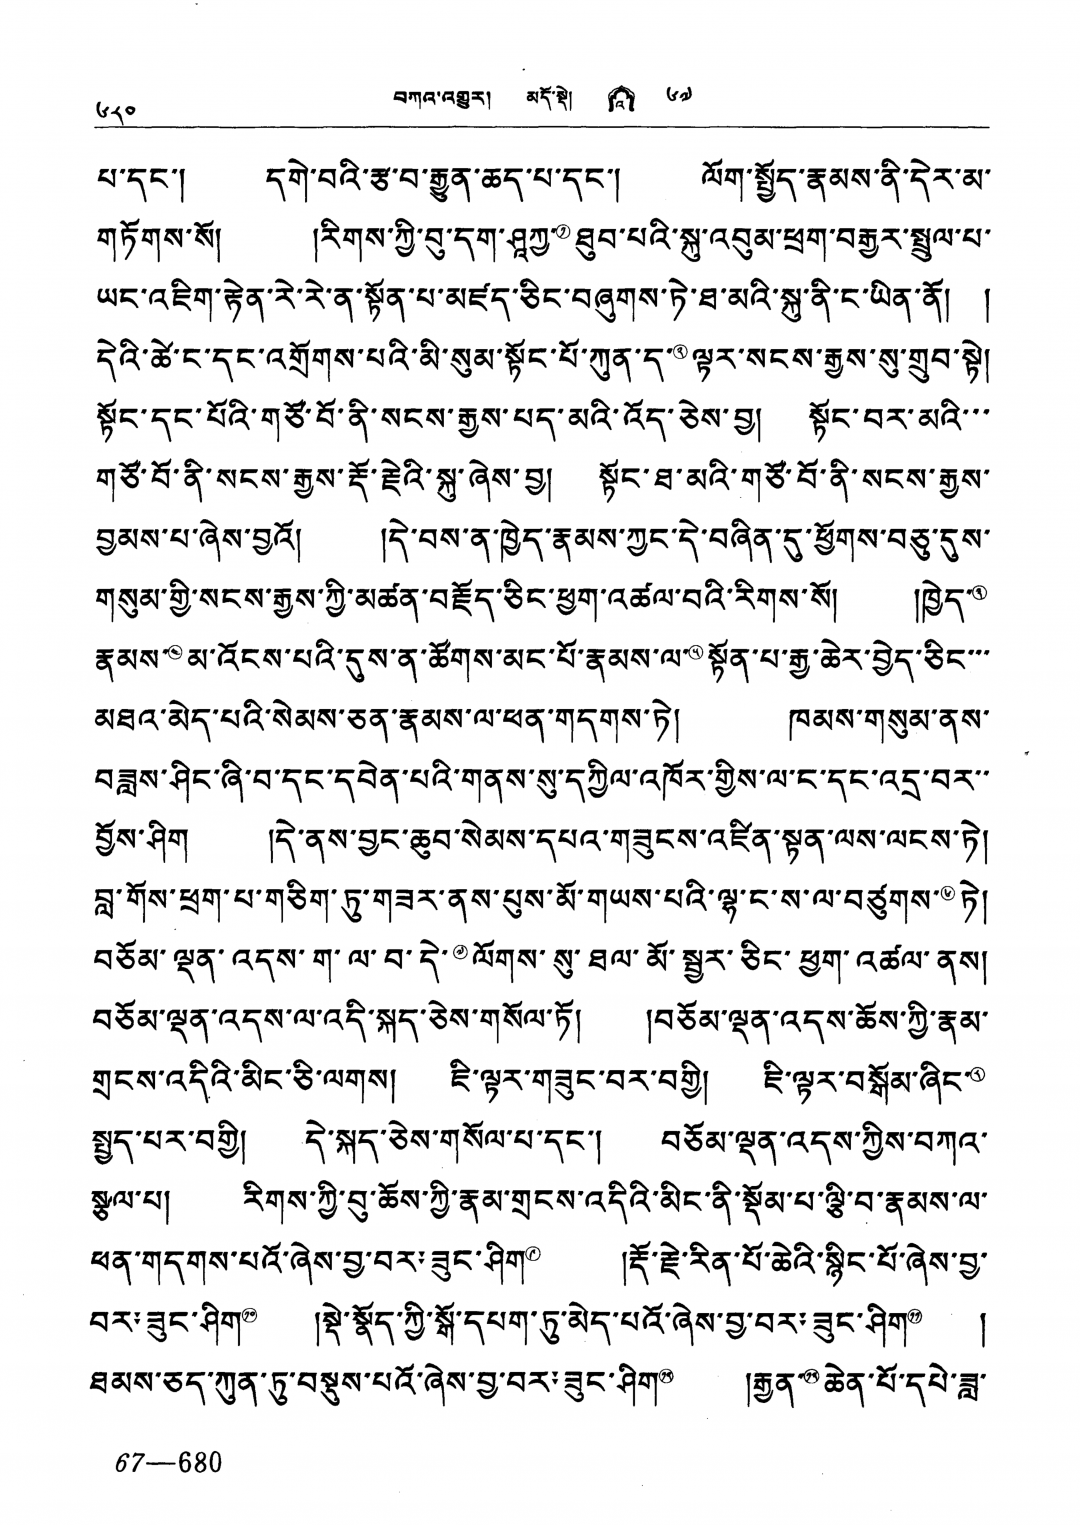 ༦༨༠ བཀའ་འགྱུར། མདོ་སྡེ། འ ༦༧
པ་དང་། དགེ་བའི་རྩ་བ་རྒྱུན་ཆད་པ་དང་། ལོག་སྤྱོད་རྣམས་ནི་དེར་མ་
གཏོགས་སོ། །རིགས་ཀྱི་བུ་དག་ཤཱཀྱ་① ཐུབ་པའི་སྐུ་འབུམ་ཕྲག་བརྒྱར་སྤྲུལ་པ་
ཡང་འཇིག་རྟེན་རེ་རེ་ན་སྟོན་པ་མཛད་ཅིང་བཞུགས་ཏེ་ཐ་མའི་སྐུ་ནི་ང་ཡིན་ནོ། །
དེའི་ཚེ་ང་དང་འགྲོགས་པའི་མི་སུམ་སྟོང་པོ་ཀུན་ད་② ལྟར་སངས་རྒྱས་སུ་གྲུབ་སྟེ།
སྟོང་དང་པོའི་གཙོ་བོ་ནི་སངས་རྒྱས་པད་མའི་འོད་ཅེས་བྱ། སྟོང་བར་མའི་་་
གཙོ་བོ་ནི་སངས་རྒྱས་རྡོ་རྗེའི་སྐུ་ཞེས་བྱ། སྟོང་ཐ་མའི་གཙོ་བོ་ནི་སངས་རྒྱས་
བྱམས་པ་ཞེས་བྱའོ། །དེ་བས་ན་ཁྱེད་རྣམས་ཀྱང་དེ་བཞིན་དུ་ཕྱོགས་བཅུ་དུས་
གསུམ་གྱི་སངས་རྒྱས་ཀྱི་མཚན་བརྗོད་ཅིང་ཕྱག་འཚལ་བའི་རིགས་སོ། །ཁྱེད་③
རྣམས་④ མ་འོངས་པའི་དུས་ན་ཚོགས་མང་པོ་རྣམས་ལ་⑤ སྟོན་པ་རྒྱ་ཆེར་བྱེད་ཅིང་་་
མཐའ་མེད་པའི་སེམས་ཅན་རྣམས་ལ་ཕན་གདགས་ཏེ། ཁམས་གསུམ་ནས་
བཟླས་ཤིང་ཞི་བ་དང་དབེན་པའི་གནས་སུ་དཀྱིལ་འཁོར་གྱིས་ལ་ང་དང་འདྲ་བར་་
བྱོས་ཤིག །དེ་ནས་བྱང་ཆུབ་སེམས་དཔའ་གཟུངས་འཛིན་སྟན་ལས་ལངས་ཏེ།
བླ་གོས་ཕྲག་པ་གཅིག་ཏུ་གཟར་ནས་པུས་མོ་གཡས་པའི་ལྷ་ང་ས་ལ་བཙུགས་⑥ ཏེ།
བཅོམ་ལྡན་འདས་ག་ལ་བ་དེ་⑦ ལོགས་སུ་ཐལ་མོ་སྦྱར་ཅིང་ཕྱག་འཚལ་ནས།
བཅོམ་ལྡན་འདས་ལ་འདི་སྐད་ཅེས་གསོལ་ཏོ། །བཅོམ་ལྡན་འདས་ཆོས་ཀྱི་རྣམ་
གྲངས་འདིའི་མིང་ཅི་ལགས། ཇི་ལྟར་གཟུང་བར་བགྱི། ཇི་ལྟར་བསྒོམ་ཞིང་⑧
སྤྱད་པར་བགྱི། དེ་སྐད་ཅེས་གསོལ་པ་དང་། བཅོམ་ལྡན་འདས་ཀྱིས་བཀའ་
སྩལ་པ། རིགས་ཀྱི་བུ་ཆོས་ཀྱི་རྣམ་གྲངས་འདིའི་མིང་ནི་སྡོམ་པ་ལྕི་བ་རྣམས་ལ་
ཕན་གདགས་པའོ་ཞེས་བྱ་བར་ཟུང་ཤིག⑨ །རྡོ་རྗེ་རིན་པོ་ཆེའི་སྙིང་པོ་ཞེས་བྱ་
བར་ཟུང་ཤིག⑩ །སྡེ་སྣོད་ཀྱི་སྒོ་དཔག་ཏུ་མེད་པའོ་ཞེས་བྱ་བར་ཟུང་ཤིག⑪ །
ཐམས་ཅད་ཀུན་ཏུ་བསྡུས་པའོ་ཞེས་བྱ་བར་ཟུང་ཤིག⑫ །རྒྱན་⑬ ཆེན་པོ་དཔེ་ཟླ་
67—680